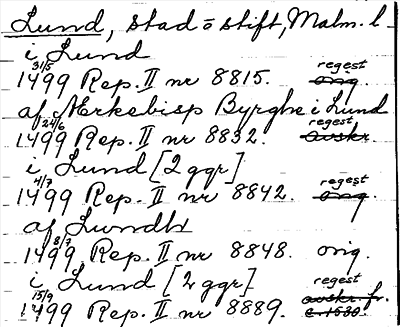 Lund, stad o stift, Malm. l
i Lund
1499 31/5 Rep. II nr 8815. orig. regest
af Ærkebisp Byrghe i Lund
1499 24/6 Rep. II nr 8832. avskr. regest
i Lund [2 ggr]
1499 4/7 Rep. II nr 8842. orig. regest
af Lundh
1499 8/7 Rep. II nr 8848. orig.
i Lund [2 ggr]
1499 15/9 Rep. II nr 8889. avskr. fr. regest
c. 1530.